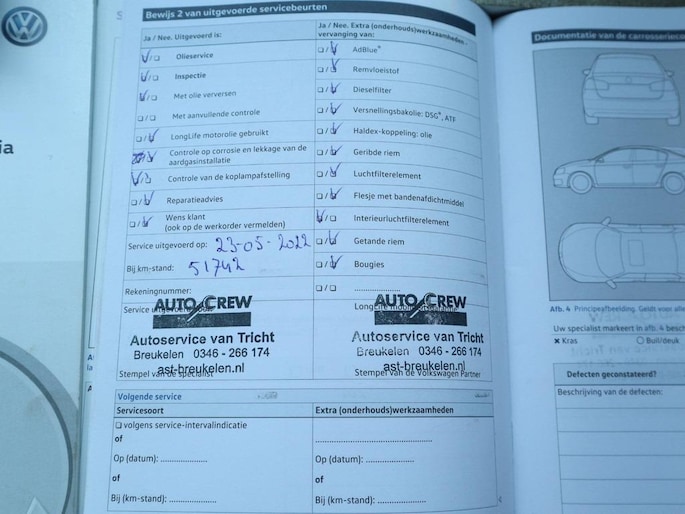 Bewijs 2 van uitgevoerde servicebeurten
Ja / Nee. Uitgevoerd is:
Olieservice
Inspectie
Met olie verversen
Met aanvullende controle
LongLife motorolie gebruikt
Controle op corrosie en lekkage van de
aardgasinstallatie
Controle van de koplampafstelling
Reparatieadvies
Wens klant
(ook op de werkorder vermelden)
Service uitgevoerd op: 23-05-2022
Bij km-stand: 51742
Rekeningnummer:
Service
AUTO CREW
Autoservice van Tricht
Breukelen 0346 - 266 174
ast-breukelen.nl
Stempel van de specialist
Ja / Nee. Extra (onderhouds)werkzaamheden -
vervanging van:
AdBlue®
Remvloeistof
Dieselfilter
Versnellingsbakolie: DSG®, ATF
Haldex-koppeling: olie
Geribde riem
Luchtfilterelement
Flesje met bandenafdichtmiddel
Interieurluchtfilterelement
Getande riem
Bougies
....................
AUTO CREW
Autoservice van Tricht
Breukelen 0346 - 266 174
ast-breukelen.nl
Stempel van de Volkswagen Partner
Volgende service
Servicesoort
volgens service-intervalindicatie
of
Op (datum): ....................
of
Bij (km-stand): ....................
Extra (onderhouds)werkzaamheden
....................
of
Op (datum): ....................
of
Bij (km-stand): ....................
ia
Documentatie van de carrosserieco
Afb. 4 Principeafbeelding. Geldt voor alle
Uw specialist markeert in afb. 4 besch
Kras
Buil/deuk
Defecten geconstateerd?
Beschrijving van de defecten: